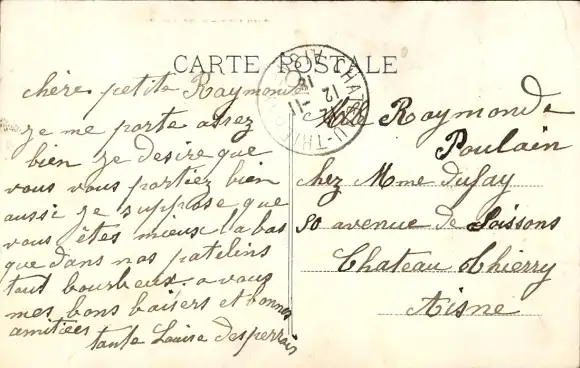 CARTE POSTALE
chère petite Raymonde
je me porte assez
bien je desire que
vous vous portiez bien
aussi je suppose que
vous êtes mieux la bas
que dans nos patelins
tout bourbeux. a vous
mes bons baisers et bonnes
amitiées
tante Louise desperrois
Mlle Raymonde
Poulain
chez Mme Dufay
50 avenue de Soissons
Chateau Thierry
Aisne
CHATEAU-THIERRY
AISNE
12
11